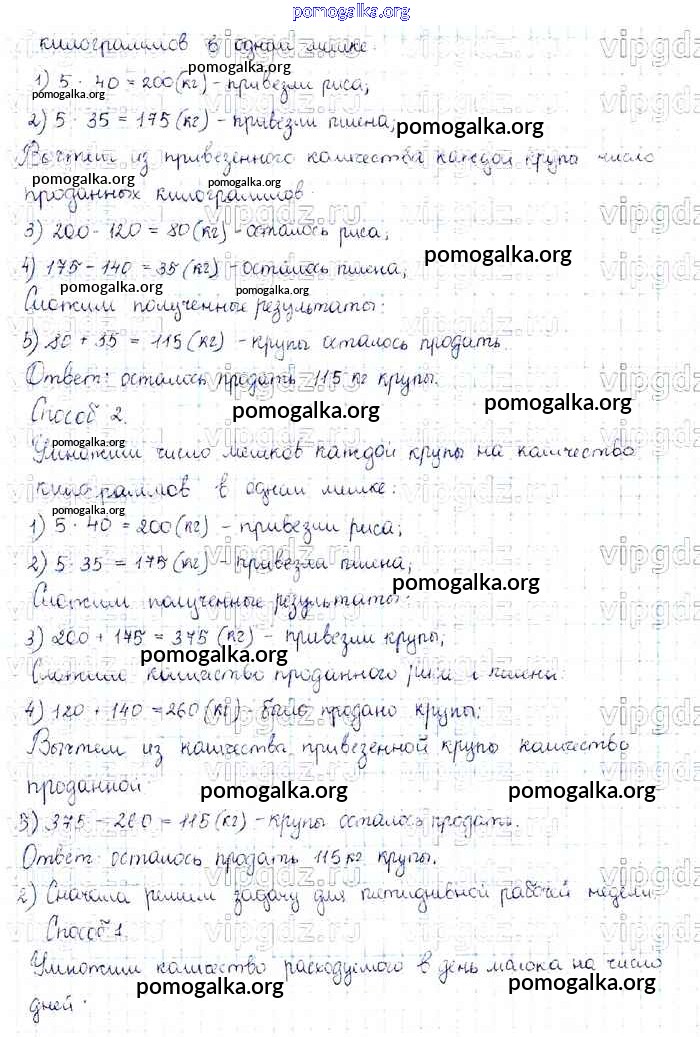 pomogalka.org
килограммов в одном мешке.
pomogalka.org
1) 5 · 40 = 200 (кг) - привезли риса;
pomogalka.org
2) 5 · 35 = 175 (кг) - привезли пшена;
pomogalka.org
Вычтем из привезенного количества каждой крупы число
pomogalka.org pomogalka.org
проданных килограммов.
3) 200 - 120 = 80 (кг) - осталось риса;
pomogalka.org
4) 175 - 140 = 35 (кг) - осталось пшена;
pomogalka.org pomogalka.org
Сложим полученные результаты:
5) 80 + 35 = 115 (кг) - крупы осталось продать.
Ответ: осталось продать 115 кг крупы.
Способ 2.
pomogalka.org pomogalka.org
pomogalka.org
Умножим число мешков каждой крупы на количество
килограммов в одном мешке:
pomogalka.org
1) 5 · 40 = 200 (кг) - привезли риса;
2) 5 · 35 = 175 (кг) - привезли пшена;
pomogalka.org
Сложим полученные результаты:
3) 200 + 175 = 375 (кг) - привезли крупы;
pomogalka.org
Сложим количество проданного риса и пшена:
4) 120 + 140 = 260 (кг) - было продано крупы;
Вычтем из количества привезенной крупы количество
проданной
pomogalka.org pomogalka.org
5) 375 - 260 = 115 (кг) - крупы осталось продать.
Ответ: осталось продать 115 кг крупы.
pomogalka.org
2) Сначала решим задачу для пятидневной рабочей недели.
Способ 1.
pomogalka.org pomogalka.org
Умножим количество расходуемого в день молока на число
pomogalka.org pomogalka.org
дней.